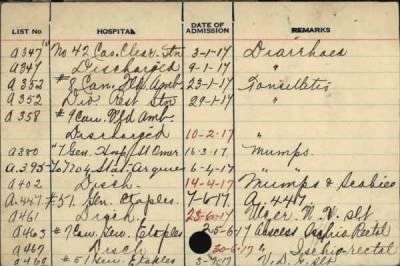 LIST NO HOSPITAL DATE OF ADMISSION REMARKS
a347 No 42 Cas. Clear. Stn 3-1-17 Diarrhoea
a347 Discharged 9-1-17 "
a352 #8 Can. Fld Amb. 23-1-17 Tonsilitis
a352 Div. Rest Stn 29-1-17 "
a358 #9 Can. Fld Amb. "
Discharged 10-2-17 "
a380 #7 Gen. Hosp St Omer 16-3-17 Mumps.
a.395 Stat. 6-4-17 "
a402 Disch. 14-4-17 Mumps & Scabies
a.447 #51. Gen. Etaples. 7-6-17 A. 447
a461 Disch. 23-6-17 Ulcer N. V. Slt
a463 #7 Can. Gen. Etaples 25-6-17 Abscess Ischio Rectal
a467 Disch 30-6-17 " Ischio-rectal
a468 #51 Gen. Etaples 3-7-17 V.D.G. Slt